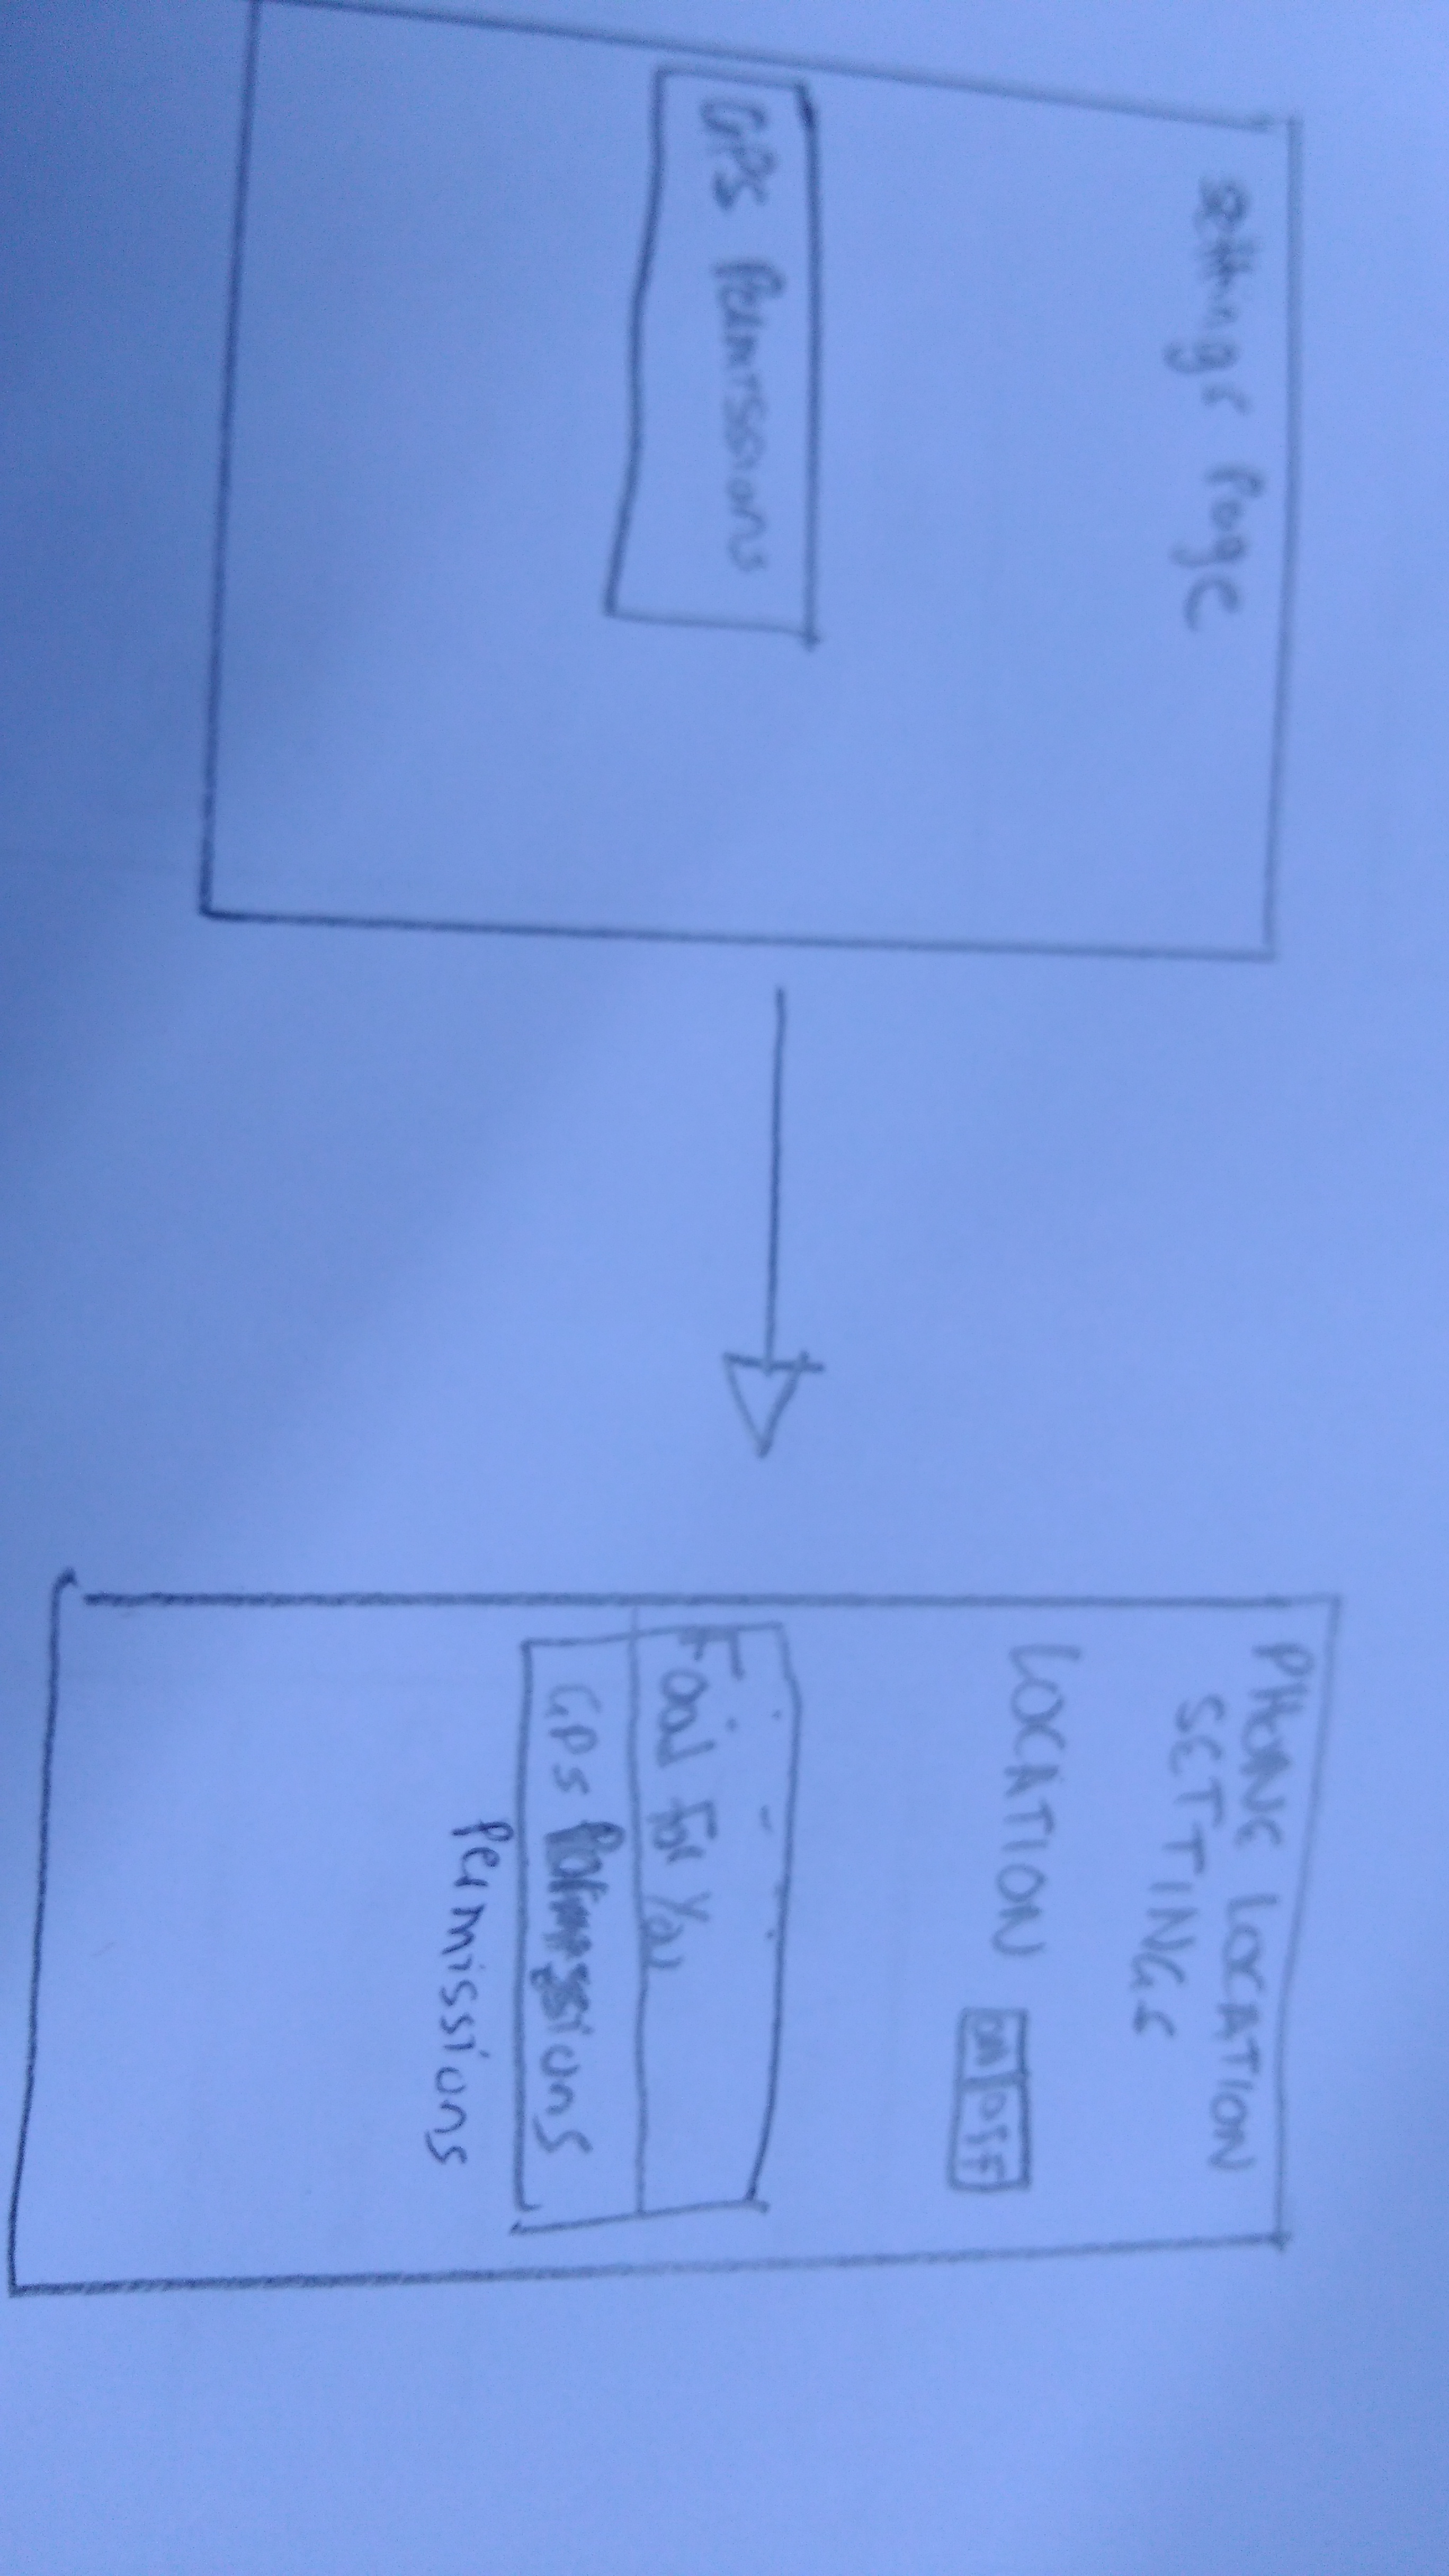 Settings Page
GPS Permissions
PHONE LOCATION
SETTINGS
LOCATION ON OFF
Food For You
GPS Permissions
Permissions